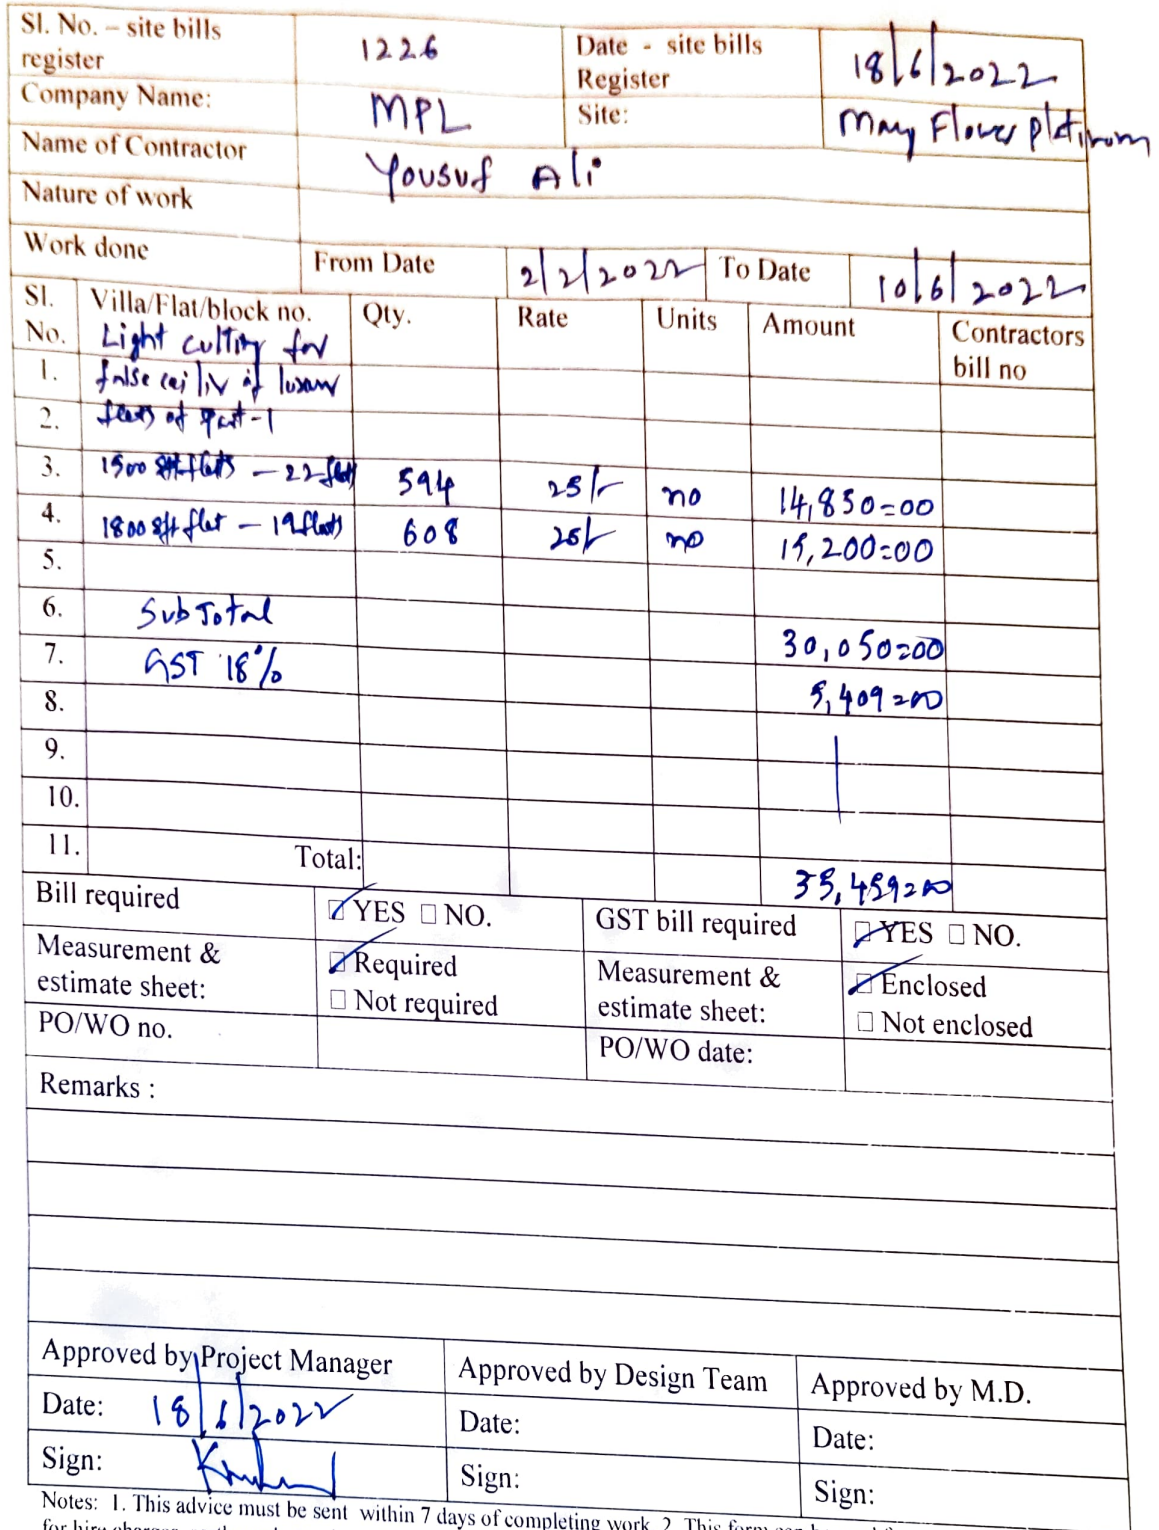 Sl. No. – site bills register 1226 Date - site bills Register 18/6/2022
Company Name: MPL Site: May Flower Platinum
Name of Contractor Yousuf Ali
Nature of work
Work done From Date 2/2/2022 To Date 10/6/2022
Sl. No. Villa/Flat/block no. Qty. Rate Units Amount Contractors bill no
Light cutting for
1. false
2. flats of Part-1
3. 1500 sft flats – 22 flats 594 25/- no 14,850=00
4. 1800 sft flat – 19 flats 608 25/- no 15,200=00
5.
6. Sub Total 30,050=00
7. GST 18% 5,409=00
8.
9.
10.
11. Total: 35,459=00
Bill required YES NO. GST bill required YES NO.
Measurement & estimate sheet: Required Not required Measurement & estimate sheet: Enclosed Not enclosed
PO/WO no. PO/WO date:
Remarks :
Approved by Project Manager Approved by Design Team Approved by M.D.
Date: 18/6/2022 Date: Date:
Sign: Sign: Sign:
Notes: 1. This advice must be sent within 7 days of completing work 2. This form can be